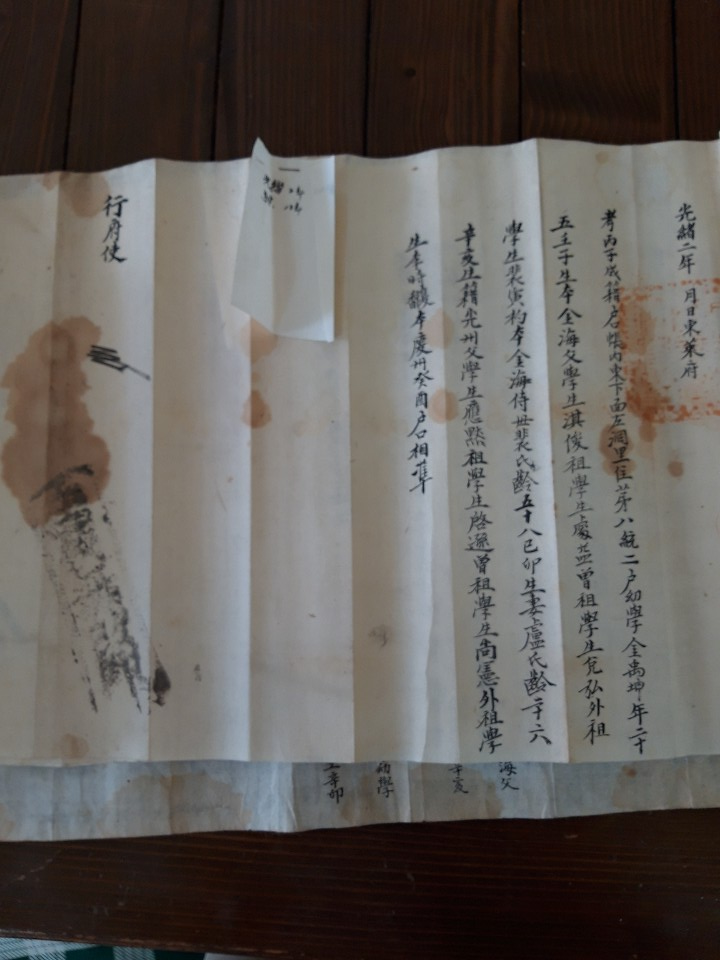 光緒二年 月日東萊府
考丙子成籍户口帳內東下面左洞里住第八統二户幼學金禹坤年二十
五壬子生本金海父學生淇俊祖學生處益曾祖學生允弘外祖
學生裴寅杓本金海侍母裴氏齡五十八己卯生妻盧氏齡二十六
辛亥生籍光州父學生應點祖學生啓遜曾祖學生尚憲外祖學
生李時馥本慶州癸酉户口相凖
行府使
海父
辛亥
幼學
辛卯